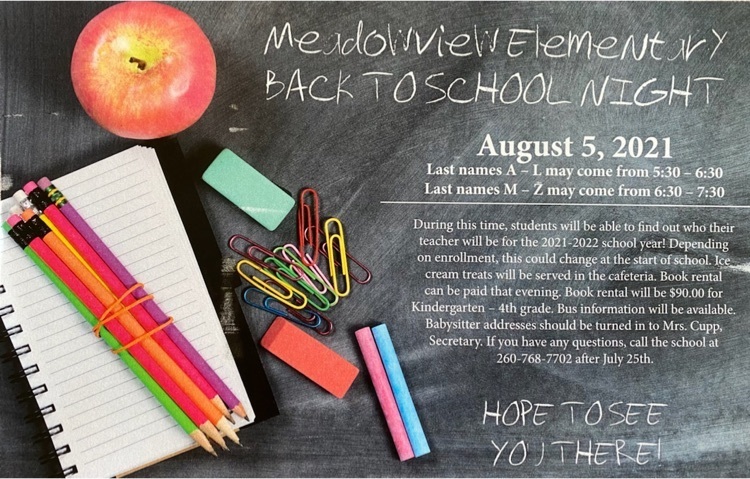 Meadowview Elementary
BACK TO SCHOOL NIGHT
August 5, 2021
Last names A – L may come from 5:30 – 6:30
Last names M – Ž may come from 6:30 – 7:30
During this time, students will be able to find out who their
teacher will be for the 2021-2022 school year! Depending
on enrollment, this could change at the start of school. Ice
cream treats will be served in the cafeteria. Book rental
can be paid that evening. Book rental will be $90.00 for
Kindergarten – 4th grade. Bus information will be available.
Babysitter addresses should be turned in to Mrs. Cupp,
Secretary. If you have any questions, call the school at
260-768-7702 after July 25th.
HOPE TO SEE
YOU THERE!